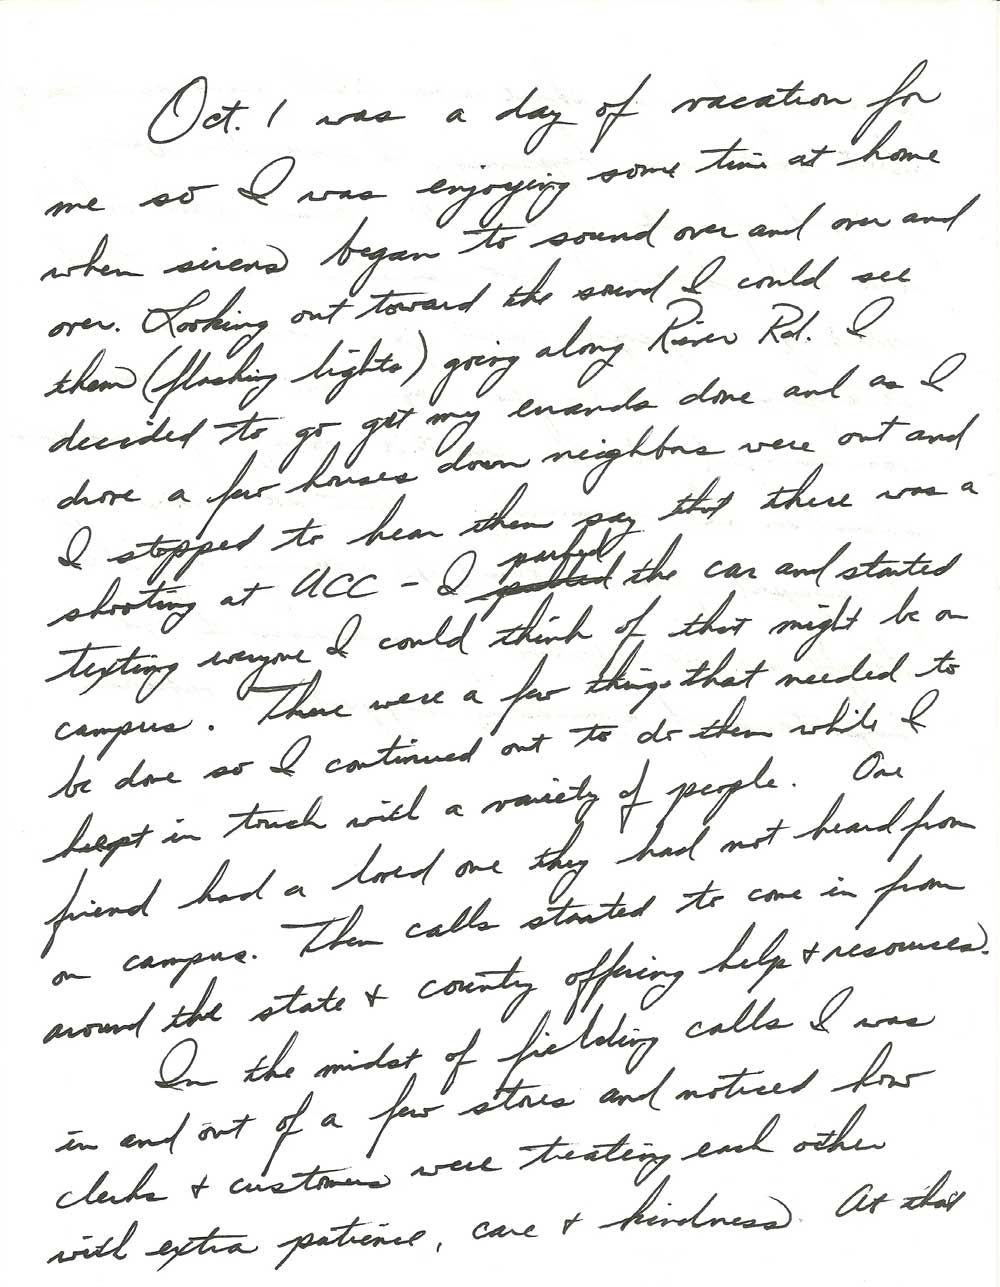 Oct. 1 was a day of vacation for
me so I was enjoying some time at home
when sirens began to sound over and over and
over. Looking out toward the sound I could see
them (flashing lights) going along River Rd. I
decided to go get my errands done and as I
drove a few houses down neighbors were out and
I stopped to hear them say that there was a
shooting at UCC - I parked the car and started
texting everyone I could think of that might be on
campus. There were a few things that needed to
be done so I continued out to do them while I
kept in touch with a variety of people. One
friend had a loved one they had not heard from
on campus. Then calls started to come in from
around the state & country offering help & resources.
In the midst of fielding calls I was
in and out of a few stores and noticed how
clerks & customers were treating each other
with extra patience, care & kindness. At that